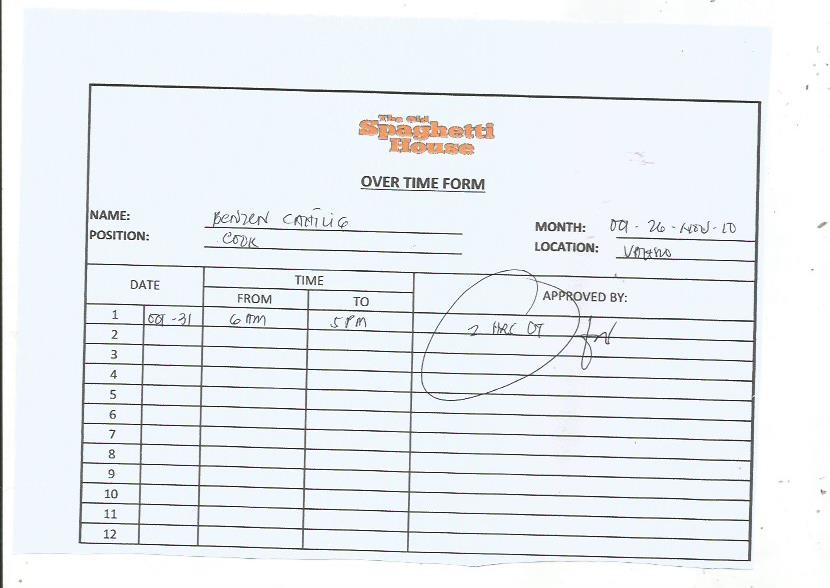 The Old
Spaghetti
House
OVER TIME FORM
NAME: BENZEN
POSITION: COOK
MONTH: OCT - 26 - NOV - 10
LOCATION:
DATE TIME APPROVED BY:
FROM TO
1 OCT - 31 6 AM 5 PM 2 HRS OT
2
3
4
5
6
7
8
9
10
11
12